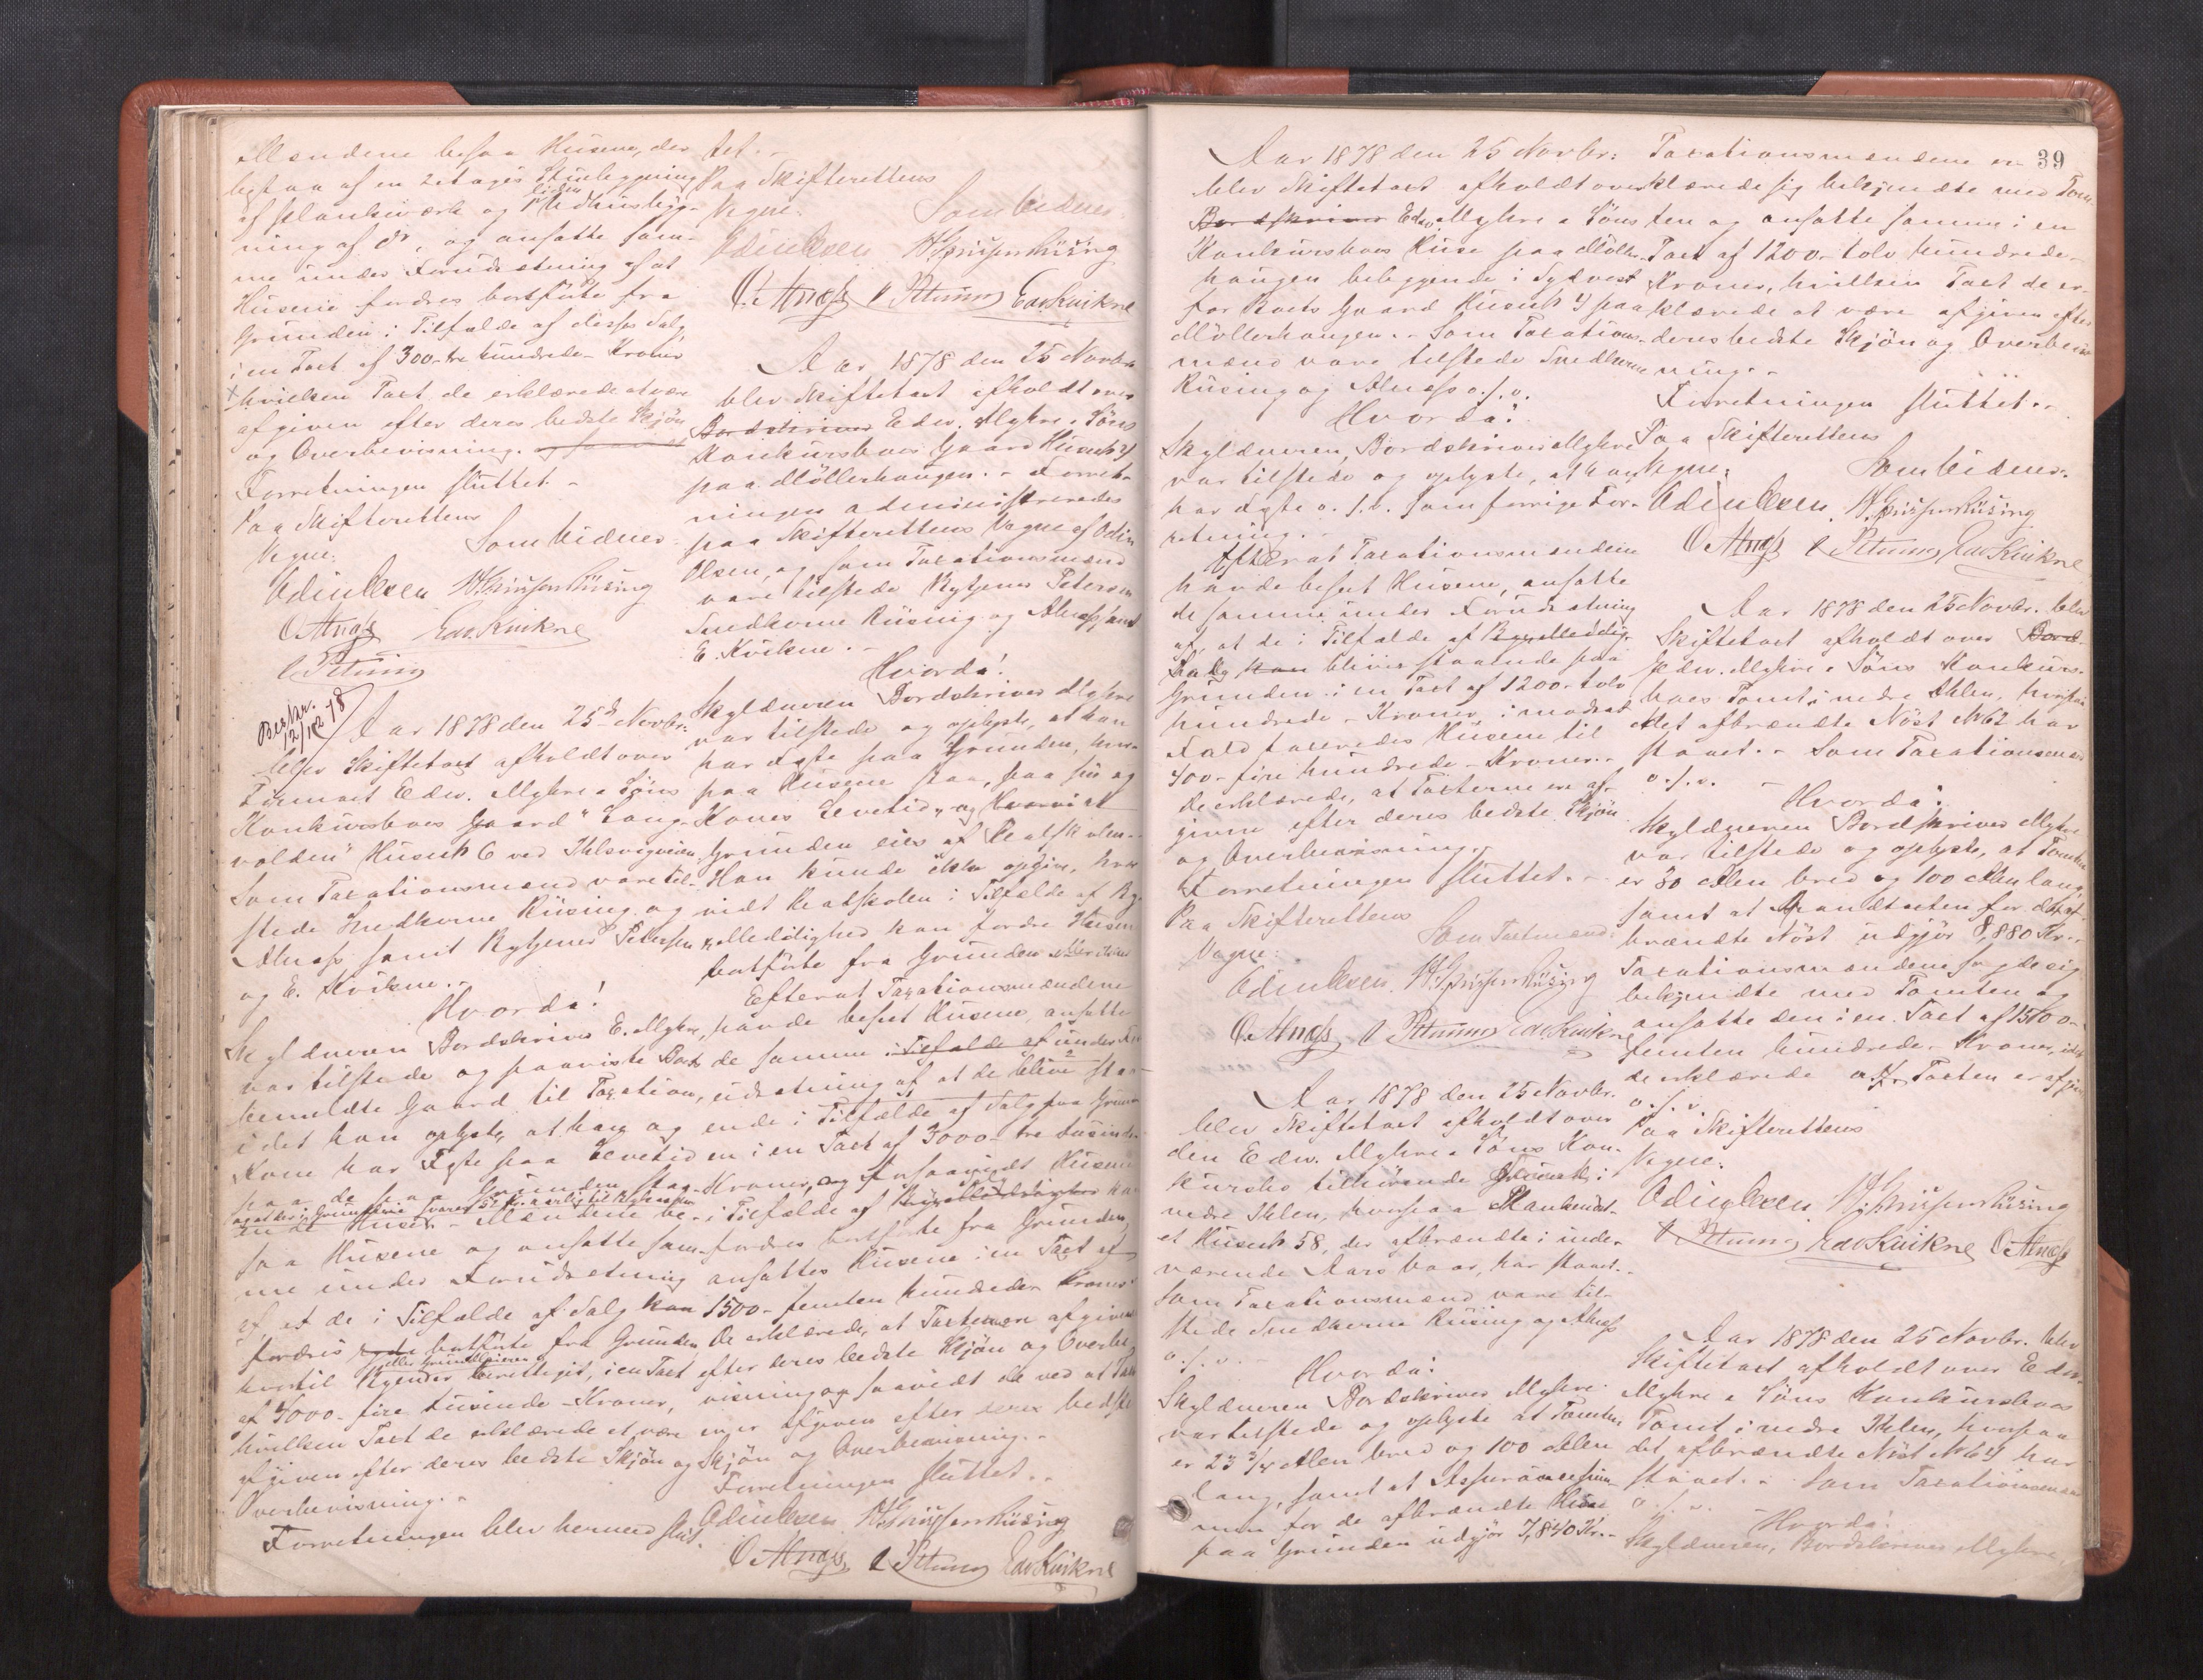 Mændene besaa Husene, der
bestaa af en 2etages Stuebygning
af Plankeværk og 1 liden Udhusbyg-
ning af do, og ansatte sam-
me under Forudsætning af at
Husene fordres bortførte fra
Grunden i Tilfælde af disses Salg
i en Taxt af 300 - tre hundrede - Kroner
hvilken Taxt de erklærede at være
afgiven efter deres bedste Skjøn
og Overbevisning.
Forretningen sluttet. -
Paa Skifterettens
Vegne: Som Vidner
Odin Olsen
O Alnæss Edv Kvikne
Petersen
Beskr. 2/12 78
Aar 1878 den 25de Novbr.
blev Skiftetaxt afholdt over
Firmaet Edw. Myhre & Søns
Konkursboes Gaard "Lang-
volden" Husnr 6 ved Ihlsvigveien.
Som Taxationsmænd vare til-
stede Snedkerne Rüsing og
Alnæss samt Rytjener Petersen
og E. Kvikne. -
Hvorda!
Skyldneren Bordskriver E. Myhre,
var tilstede og paaviste Bo
bemeldte Gaard til Taxation,
idet han oplyste, at han og
Kone har Fæste paa Levetid
paa de paa Grunden staa-
ende Huse. - Mændene be-
saa Husene og ansatte sam-
me under Forudsætning
af, at de i Tilfælde af Salg kan
fordres bortførte fra Grunden
hvortil Byen er eller Grundeieren berettiget, i en Taxt
af 4000 - fire tusinde - Kroner,
hvilken Taxt de erklærede at være
afgiven efter deres bedste Skjøn og
Overbevisning. -
Forretningen blev hermed slut-
tet. -
Paa Skifterettens
Vegne: Som Vidner:
Odin Olsen
O Alnæss Petersen Edv Kvikne
Aar 1878 den 25 Novbr.
blev Skiftetaxt afholdt over
Bordskriver Edw. Myhre & Søns
Konkursboes Gaard Husnr 4
paa Møllerhougen. - Forret-
ningen administreredes
paa Skifterettens Vegne af Odin
Olsen, og som Taxationsmænd
vare tilstede Rytjener Petersen
Snedkerne Rüsing og Alnæss samt
E. Kvikne. -
Hvorda!
Skyldneren Bordskriver Myhre
var tilstede og oplyste, at han
har Fæste paa Grunden, hvor-
paa Husene staa, paa sin og
Kones Levetid, og
Grunden eies af Realskolen. -
Han kunde ikke opgive, hvor
vidt Realskolen i Tilfælde af
kan fordre Husene
bortførte fra Grunden
Efterat Taxationsmændene
havde beset Husene, ansatte
de samme i Tilfælde af under For-
udsætning af, at de blive sta-
ende i Tilfælde af Salg paa Grun-
en i en Taxt af 3000 - tre tusinde
Kroner, og forsaavidt Husene
i Tilfælde af kan
fordres bortførte fra Grunden,
ansattes Husene i en Taxt af
1500 - femten hundrede - Kroner.
De erklærede, at Taxterne ere afgivne
efter deres bedste Skjøn og Overbe-
visning
er afgiven efter deres bedste
Skjøn og Overbevisning. -
Forretningen sluttet. -
Odin Olsen
O Alnæss Petersen Edv Kvikne
39
Aar 1878 den 25 Novbr:
blev Skiftetaxt afholdt over
Bordskriver Edw. Myhre & Søns
Konkursboes Huse paa Møller-
hougen beliggende i Sydvest
for Boets Gaard Husnr 4 paa
Møllerhougen. - Som Taxations-
mænd vare tilstede Snedkerne
Rüsing og Alnæss o. s. v.
Hvorda!
Skyldneren, Bordskriver Myhre
var tilstede og oplyste, at han
har Fæste o. s. v. som forrige For-
retning. -
Efterat Taxationsmændene
havde beset Husene, ansatte
de samme under Forudsætning
af, at de i Tilfælde af
Salg kan blive staaende paa
Grunden i en Taxt af 1200 - tolv
hundrede - Kroner; i modsat
Fald taxeredes Husene til
400 - fire hundrede - Kroner. -
De erklærede, at Taxterne ere af-
givne efter deres bedste Skjøn
og Overbevisning. -
Forretningen sluttet. -
Paa Skifterettens
Vegne: Som Taxtmænd:
Odin Olsen
O Alnæss Petersen Edv Kvikne
Aar 1878 den 25 Novbr.
blev Skiftetaxt afholdt over
den Edw. Myhre & Søns Kon-
kursbo tilhørende Grund i
nedre Ihlen, hvorpaa
et Husnr 58, der afbrændte i inde-
værende Aars Vaar, har staaet. -
Som Taxationsmænd vare til-
stede Snedkerne Rüsing og Alnæss
o. s. v. -
Hvorda:
Skyldneren Bordskriver Myhre
var tilstede og oplyste at Tomten
er 23 3/4 Alen bred og 100 Alen
lang, samt at Assurancesum-
men for de afbrændte Huse
paa Grunden udgjør 7,840 Kr. -
Taxationsmændene er-
klærede sig bekjendte med Tom-
ten og ansatte samme i en
Taxt af 1200 - tolv hundrede -
Kroner, hvilken Taxt de er-
klærede at være afgiven efter
deres bedste Skjøn og Overbevis-
ning. -
Forretningen sluttet. -
Paa Skifterettens
Vegne: Som Vidner:
Odin Olsen
O Alnæss Petersen Edv Kvikne
Aar 1878 den 25 Novbr. blev
Skiftetaxt afholdt over Bord-
Edw. Myhre & Søns Konkurs-
boes Tomt i nedre Ihlen, hvorpaa
det afbrændte Nøst No 62 har
staaet. - Som Taxationsmænd
o. s. v. -
Hvorda:
Skyldneren Bordskriver Myhre
var tilstede og oplyste, at Tomten
er 30 Alen bred og 100 Alen lang,
samt at Brandtaxten for det af-
brændte Nøst udgjør 8,880 Kr. -
Taxationsmændene sagde sig
bekjendte med Tomten og
ansatte den i en Taxt af 1500 -
femten hundrede - Kroner, idet
de erklærede at Taxten er afgiven
o. s. v.
Paa Skifterettens
Vegne:
Odin Olsen
Petersen Edv Kvikne O Alnæss
Aar 1878 den 25 Novbr. blev
Skiftetaxt afholdt over Edw.
Myhre & Søns Konkursboes
Tomt i nedre Ihlen, hvorpaa
det afbrændte Nøst No 64 har
staaet. - Som Taxationsmænd
o. s. v.
Hvorda:
Skyldneren, Bordskriver Myhre,